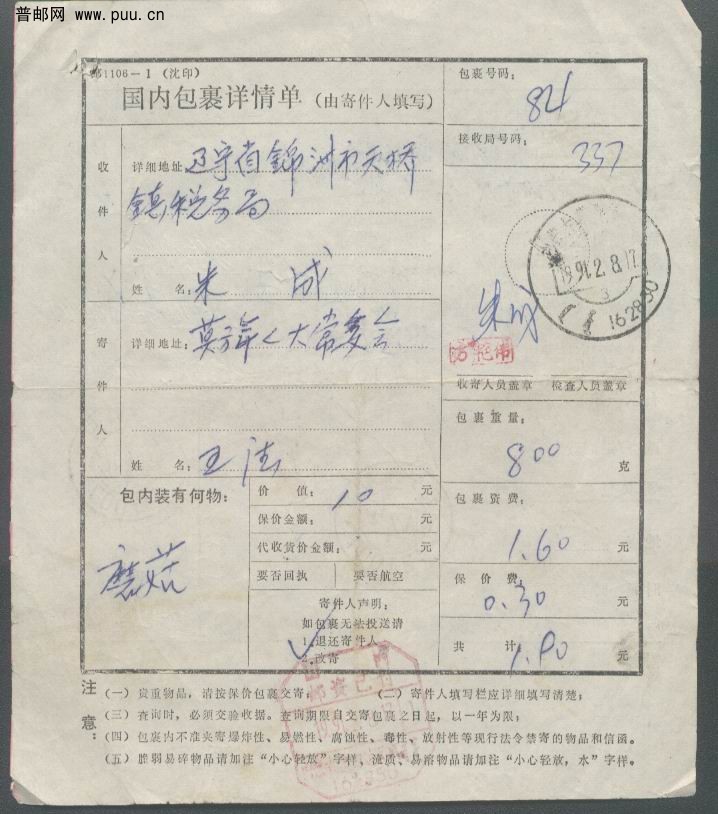 普邮网 www.puu.cn
邮1106-1 (沈印)
国内包裹详情单 (由寄件人填写)
包裹号码：
84
接收局号码：
337
收件人
详细地址 辽宁省錦州市天桥
鎮税务局
姓 名： 朱 成
1991.2.8.17
162850
寄件人
详细地址： 人大常委会
姓 名： 王
朱成
收寄人员盖章 检查人员盖章
包裹重量：
800 克
包内装有何物：
蘑菇
价 值： 10 元
保价金额： 元
代收货价金额： 元
要否回执 要否航空
寄件人声明：
如包裹无法投送请
1.退还寄件人
2.改寄
包裹资费：
1.60 元
保 价 费：
0.30 元
共 计
1.90 元
邮资已付
注意：
(一) 贵重物品，请按保价包裹交寄； (二) 寄件人填写栏应详细填写清楚；
(三) 查询时，必须交验收据。查询期限自交寄包裹之日起，以一年为限；
(四) 包裹内不准夹寄爆炸性、易燃性、腐蚀性、毒性、放射性等现行法令禁寄的物品和信函。
(五) 脆弱易碎物品请加注“小心轻放”字样，流质、易溶物品请加注“小心轻放，水”字样。